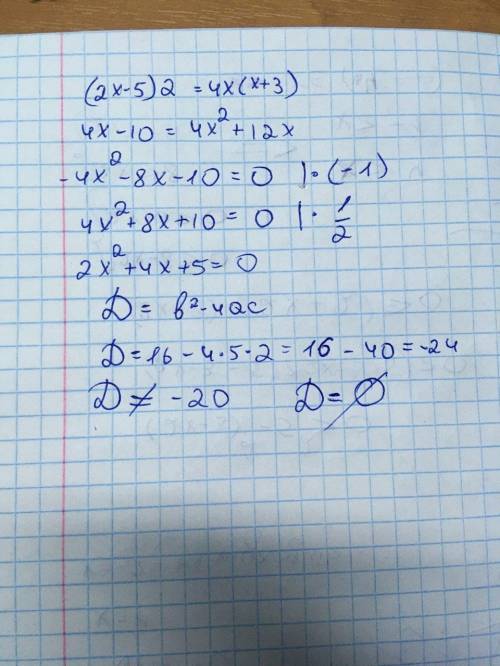 (2x-5)2 = 4x(x+3)
4x-10 = 4x²+12x
-4x²-8x-10 = 0 |·(-1)
4x²+8x+10 = 0 |· 1/2
2x²+4x+5 = 0
D = b²-4ac
D = 16 - 4·5·2 = 16 - 40 = -24
D ≠ -20 D = ∅